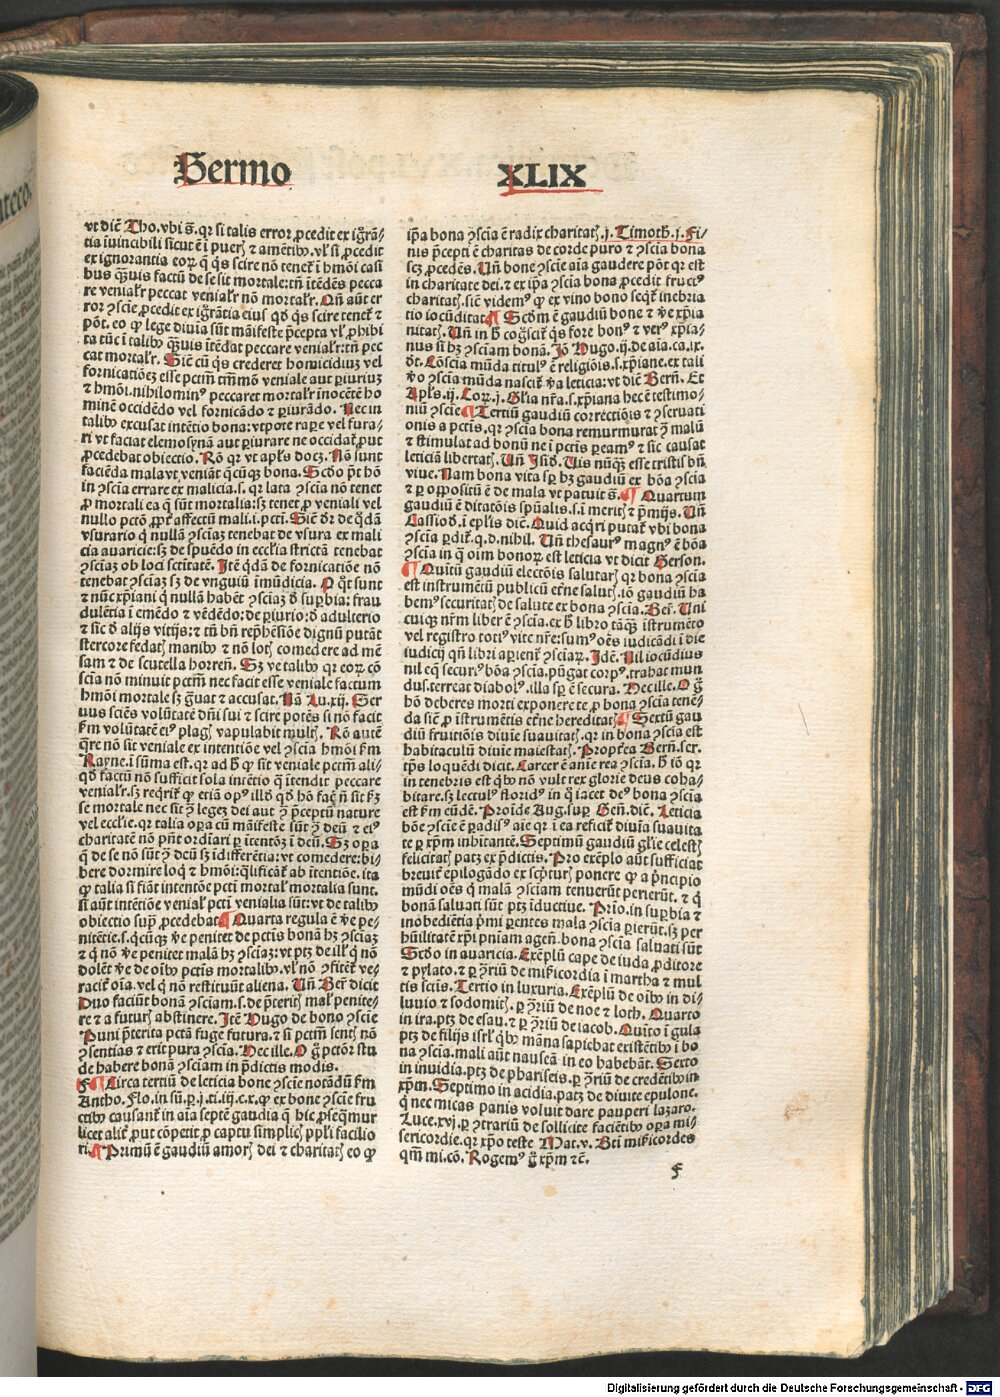 Sermo XLIX
vt diē Tho. vbi s̄. qr si talis error ꝓcedit ex igrā-
tia īuincibili sicut ē ī pueris ⁊ amētibꝰ. vl̓ si ꝓcedit
ex ignorantia eoꝝ q̄ qs scire nō tenet̄ ī hmōi casi
bus qꝫuis factū de se sit mortale: tn̄ itēdēs pecca
re venialr̄ peccat venialr̄ nō mortalr̄. Qn̄ aūt er-
ror ꝯscīe ꝓcedit ex igrātia eius qd̄ qs scire tenet̄ ⁊
pōt. eo ꝙ lege diuīa sūt māifeste p̄cepta vl̓ ꝓhibi
ta tūc ī talibꝰ qꝫuis itēdat peccare venialr̄: tn̄ pec
cat mortalr̄. Sic̄ cū qs crederet homicidiuꝫ vel
fornicationeꝫ esse pctm̄ tm̄mō veniale aut ꝑiuriuꝫ
⁊ hmōi. nihilominꝰ peccaret mortalr̄ inocētē ho
minē occidēdo vel fornicādo ⁊ ꝑiurādo. Nec in
talibꝰ excusat intētio bona: vtpote raꝑe vel fura-
ri vt faciat elemosynā aut ꝑiurare ne occidat̄ ꝓut
ꝓcedebat obiectio. Rō qr vt apl̄s docꝫ. Nō sunt
faciēda mala vt veniāt q̄cūqꝫ bona. Scdo pt̄ hō
in ꝯscīa errare ex malicia. s. qr lata ꝯscīa nō tenet
ꝓ mortali ea q̄ sūt mortalia: sꝫ tenet ꝓ veniali vel
nullo pctō ꝓpt̄ affectū mali. i. pcti. Sic̄ dr̄ de q̄dā
vsurario q̄ nullā ꝯsciaꝫ tenebat de vsura ex mali
cia auaricie: sꝫ de spuēdo in ecclīa strictā tenebat
ꝯsciaꝫ ob loci sctitatē. Itē q̄dā de fornicatiōe nō
tenebat ꝯsciaꝫ sꝫ de vnguiū īmūdicia. P qt̄ sunt
⁊ nūc xp̄iani q̄ nullā habēt ꝯsciaꝫ d̄ suꝑbia: frau
dulētia ī emēdo ⁊ vēdēdo: de ꝑiurio: d̄ adulterio
⁊ sic d̄ alijs vitijs: ⁊ tn̄ bn̄ rep̄hēsiōe dignū putāt
stercore fedatis manibꝰ ⁊ nō lotis comedere ad mē
sam ⁊ de scutella horren̄. Sꝫ ve talibꝰ qr eoꝝ cō
scīa nō minuit pctm̄ nec facit esse veniale factum
hmōi mortale sꝫ g̓uat ⁊ accusat. Nā Lu. xij. Ser
uus sciēs volūtatē dn̄i sui ⁊ scire potēs si nō facit
s̄m volūtatē eiꝰ plagis vapulabit multis. Rō autē
q̄re nō sit veniale ex intētiōe vel ꝯscīa hmōi s̄m
Rayne. ī sūma est. qr ad h̄ ꝙ sit veniale pctm̄ ali-
qd̄ factū nō sufficit sola intētio q̄ itendit peccare
venialr̄. sꝫ reqrit̄ ꝙ etiā opꝰ illd̄ qd̄ hō facit n̄ sit s̄
se mortale nec sit ꝯ legeꝫ dei aut ꝯ p̄ceptū nature
vel ecclīe. qr talia oꝑa cū māifeste sūt ꝯ deū ⁊ eiꝰ
charitatē nō pn̄t ordīari ꝑ itentōꝫ ī deū. Sꝫ oꝑa
q̄ de se nō sūt ꝯ deū sꝫ idifferētia: vt comedere: bi-
bere dormire loq̄ ⁊ hmōi: q̄lificāt̄ ab itentiōe. ita
ꝙ talia si fiāt intentōe pcti mortal̓ mortalia sunt.
si aūt intētiōe venial̓ pcti venialia sūt: vt de talibꝰ
obiectio supꝰ ꝓcedebat. Quarta regula ē v̄e pe-
nitētie. s. q̄cūqꝫ v̄e penitet de pctis bonā hꝫ ꝯsciaꝫ
⁊ q̄ nō v̄e penitet malā hꝫ ꝯsciaꝫ: vt ptꝫ de ill̓ q̄ nō
dolēt v̄e de oībꝰ pctis mortalibꝰ. vl̓ nō ꝯfitēt̄ ve-
racit̄ oīa. vel q̄ nō restituūt aliena. Vn̄ Ber̄ dicit
Duo faciūt bonā ꝯsciam. s. de p̄teritis malis penite-
re ⁊ a futuris abstinere. Itē Hugo de bono ꝯscīe
Puni p̄terita pctā fuge futura. ⁊ si pctm̄ sentis nō
ꝯsentias ⁊ erit pura ꝯscīa. Hec ille. O g̓ pctōr̄ stu
de habere bonā ꝯsciam in p̄dictis modis.
Circa tertiū de leticia bone ꝯscīe notādū s̄m
Antho. Flo. in sū. p. j. ti. iij. c. x. ꝙ ex bone ꝯscīe fru
ctibꝰ causant̄ in aīa septē gaudia q̄ hic ꝓseq̄mur
licet alit̄ ꝓut cōpetit ꝓ captu simplicis ppl̓i facilio
ri. Primū ē gaudiū amoris dei ⁊ charitatis eo ꝙ
ip̄a bona ꝯscīa ē radix charitatis. j. Timoth. j. Fi-
nis p̄cepti ē charitas de corde puro ⁊ ꝯscīa bona
scꝫ ꝓcedēs. Vn̄ bone ꝯscīe aīa gaudere pōt qr est
in charitate dei. ⁊ ex ip̄a ꝯscīa bona ꝓcedit fructꝰ
charitatis. sic̄ videmꝰ ꝙ ex vino bono seqt̄ inebria
tio iocūditatis. Scd̄m ē gaudiū bone ⁊ v̄e xp̄ia
nitatis. Vn̄ in h̄ cogscit̄ qs fore bonꝰ ⁊ verꝰ xp̄ia-
nus si hꝫ ꝯsciam bonā. Iō Hugo. ij. de aīa. ca. ix.
dt̄. Cōscīa mūda titulꝰ ē religiōis. s. xp̄iane. ex tali
v̄o ꝯscīa mūda nascit̄ v̄a leticia: vt diē Bern̄. Et
Apl̄s. ij. Coꝝ. j. Gl̓ia nr̄a. s. xp̄iana hec ē testimo-
niū ꝯscīe. Tertiū gaudiū correctiōis ⁊ ꝯseruati
onis a pctis. qr ꝯscīa bona remurmurat ꝯ malū
⁊ stimulat ad bonū ne ī pctis ꝑeamꝰ ⁊ sic causat
leticiā libertatis. Vn̄ Isid̄. Vis nūq̄ esse tristis bn̄
viue. Nam bona vita sꝑ hꝫ gaudiū ex bōa ꝯscīa
⁊ ꝑ oppositū ē de mala vt patuit s̄. Quartum
gaudiū ē ditatōis spūalis. s. ī meritis ⁊ p̄mijs. Vn̄
Cassiod̄. ī epl̄is diē. Quid acqri putat̄ vbi bona
ꝯscīa ꝑdit̄. q. d. nihil. Vn̄ thesaurꝰ magnꝰ ē bōa
ꝯscīa in q̄ oīm bonoꝝ est leticia vt dicit Gerson.
Quītū gaudiū electōis salutaris qr bona ꝯscīa
est instrumētū publicū etn̄e salutis. iō gaudiū ha
bemꝰ securitatis de salute ex bona ꝯscīa. Ber̄. Vni
cuiqꝫ nr̄m liber ē ꝯscīa. ex h̄ libro tāqꝫ īstrumēto
vel registro totiꝰ vite nr̄e: sumꝰ oēs iudicādi ī die
iudicij qn̄ libri aꝑient̄ ꝯsciaꝝ. Idē. Nil iocūdius
nil eq̄ securꝰ bōa ꝯscīa. pūgat corpꝰ. trahat mun
dus. terreat diabolꝰ. illa sꝑ ē secura. Hec ille. O g̓
hō deberes morti exponere te ꝓ bona ꝯscīa tenē-
da sic̄ ꝓ īstrumētis etn̄e hereditatis. Sextū gau
diū fruitiōis diuīe suauitatis. qr in bona ꝯscīa est
habitaculū diuīe maiestatis. Propterea Bern̄. scr.
tp̄s loquēdi dicit. Carcer ē anīe rea ꝯscīa. h̄ iō qr
in tenebris est qbꝰ nō vult rex glorie deus coha-
bitare. sꝫ lectulꝰ floridꝰ in q̄ iacet deꝰ bona ꝯscīa
est s̄m eūdē. Proīde Aug. suꝑ Gen̄. diē. Leticia
bōe ꝯscīe ē ꝑadisꝰ aīe qr ī ea reficit̄ diuīa suauita
te ꝑ xp̄m inhitante. Septimū gaudiū gl̓ie celestis
felicitatis patꝫ ex p̄dictis. Pro exēplo aūt sufficiat
breuit̄ epilogādo ex sc̄pturis ponere ꝙ a p̄ncipio
mūdi oēs q̄ malā ꝯsciam tenuerūt perierūt. ⁊ q̄
bonā saluati sūt ptꝫ iductiue. Prīo. in suꝑbia ⁊
inobediētia p̄mi ꝑentes mala ꝯscīa ꝑierūt. sꝫ per
hūilitatē xp̄i pniam agen̄. bona ꝯscīa saluati sūt
Scdo in auaricia. Exēplū cape de iuda ꝓditore
⁊ pylato. ⁊ ꝑ ꝯriū de mis̄ricordia ī martha ⁊ mul
tis scīs. Tertio in luxuria. Exēplū de oībꝰ in di-
luuio ⁊ sodomitis. ꝑ ꝯriū de noe ⁊ loth. Quarto
in ira. ptꝫ de esau. ⁊ ꝑ ꝯriū de iacob. Quīto ī gula
ptꝫ de filijs isrl̓ qbꝰ māna sapiebat existētibꝰ ī bo
na ꝯscīa. mali aūt nauseā in eo habebāt. Sexto
in inuidia. ptꝫ de phariseis. ꝑ ꝯriū de credētibꝰ in
xp̄m. Septimo in acidia. patꝫ de diuite epulone.
q̄ nec micas panis voluit dare pauperi lazaro.
Luce. xvj. ꝑ ꝯtrariū de sollicite faciētibꝰ oꝑa mi-
sericordie. qr xp̄o teste Mat. v. Bti mis̄ricordes
qm̄ mi. cō. Rogemꝰ g̓ xp̄m ⁊c̄.
f
Digitalisierung gefördert durch die Deutsche Forschungsgemeinschaft - DFG